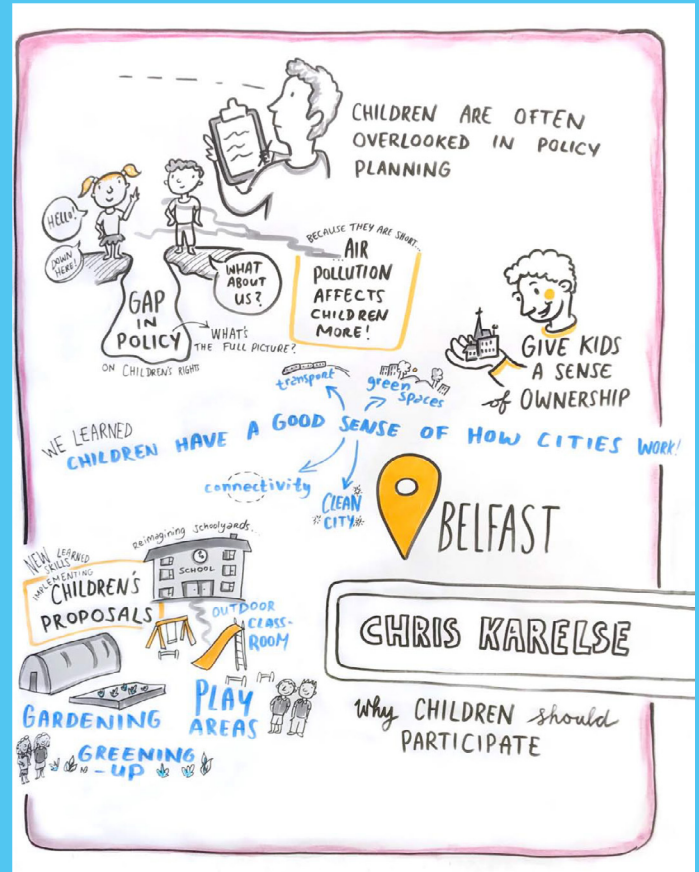 CHILDREN ARE OFTEN
OVERLOOKED IN POLICY
PLANNING
HELLO!
DOWN
HERE!
WHAT
ABOUT
US?
GAP
IN
POLICY
ON CHILDREN'S RIGHTS
WHAT'S
THE FULL PICTURE?
BECAUSE THEY ARE SHORT...
...AIR
POLLUTION
AFFECTS
CHILDREN
MORE!
GIVE KIDS
A SENSE
of OWNERSHIP
transport
green
spaces
WE LEARNED
CHILDREN HAVE A GOOD SENSE OF HOW CITIES WORK!
connectivity
CLEAN
CITY
BELFAST
NEW LEARNED
SKILLS
IMPLEMENTING
CHILDREN'S
PROPOSALS
Reimagining schoolyards...
SCHOOL
OUTDOOR
CLASS-
ROOM
GARDENING
PLAY
AREAS
GREENING
-UP
CHRIS KARELSE
why CHILDREN should
PARTICIPATE